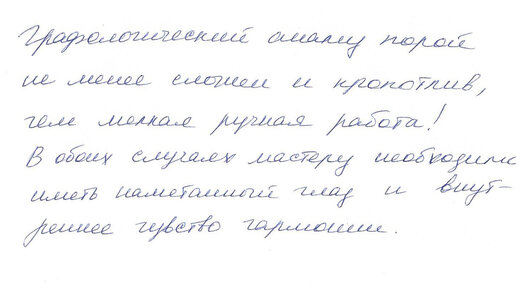 Графологический анализ порой
не менее сложен и кропотлив,
чем мелкая ручная работа!
В обоих случаях мастеру необходимо
иметь наметанный глаз и внут-
реннее чувство гармонии.